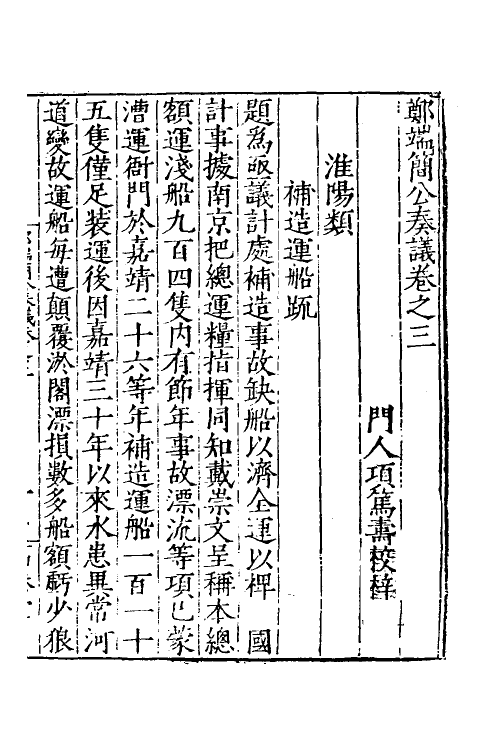 鄭端簡公奏議卷之三
門人項篤壽校梓
淮陽類
補造運船疏
題為亟議計處補造事故缺船以濟全運以裨 國
計事據南京把總運糧指揮同知戴崇文呈稱本總
額運淺船九百四隻內有節年事故漂流等項已蒙
漕運衙門於嘉靖二十六等年補造運船一百一十
五隻僅足裝運後因嘉靖三十年以來水患異常河
道變故運船每遭顛覆淤閣漂損數多船額虧少狼